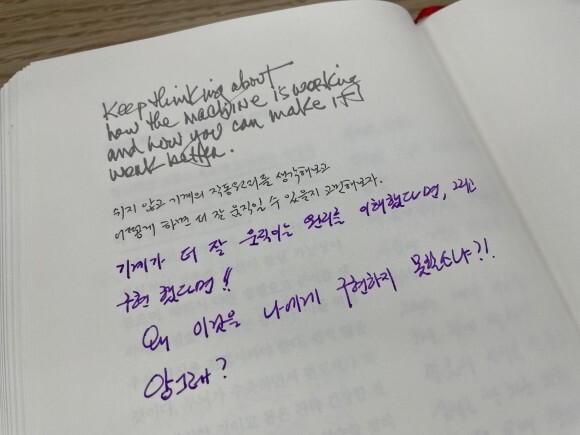 Keep thinking about
how the machine is working
and how you can make it
work better.
쉬지 않고 기계의 작동원리를 생각해보고
어떻게 하면 더 잘 움직일 수 있을지 고민해보자.
기계가 더 잘 움직이는 원리를 이해했다면, 그리고
구현했다면!!
왜 이것을 나에게 구현하지 못할소냐?!
안그래?